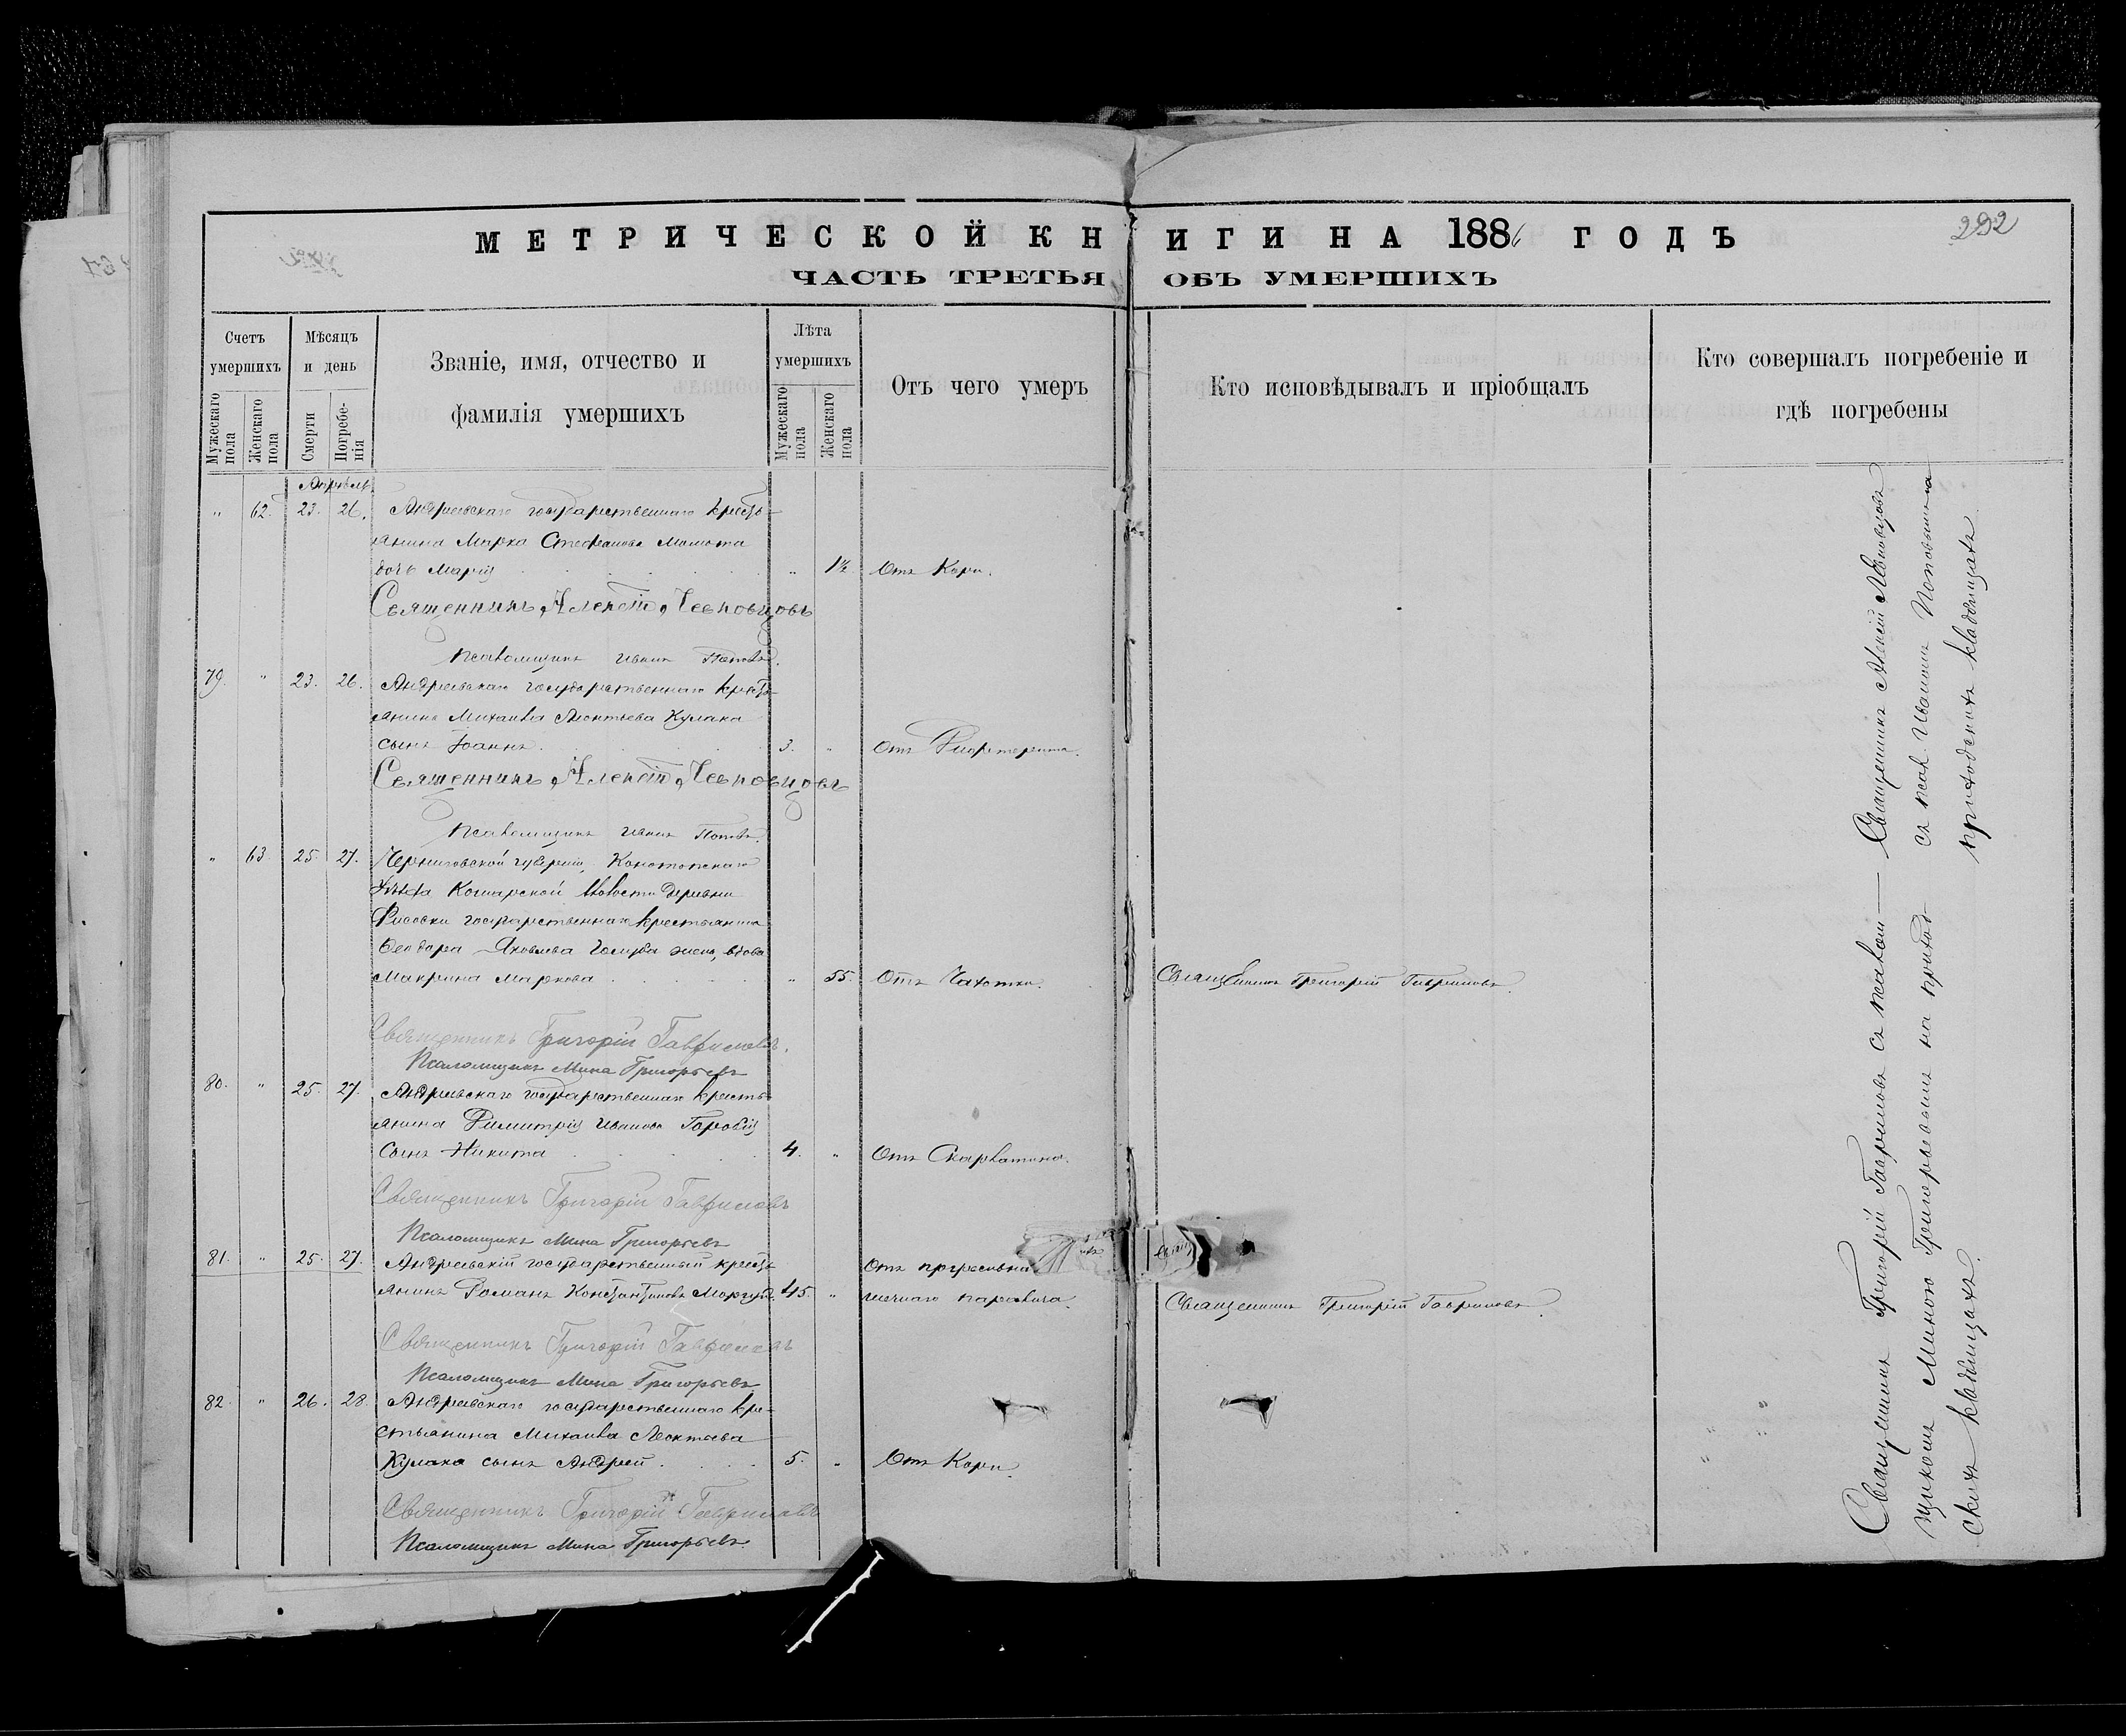 МЕТРИЧЕСКОЙ КНИГИ НА 1886 ГОДЪ
292
ЧАСТЬ ТРЕТЬЯ ОБЪ УМЕРШИХЪ
Счетъ умершихъ
Мужескаго пола
Женскаго пола
Мѣсяцъ и день
Смерти
Погребенія
Званіе, имя, отчество и
фамилія умершихъ
Лѣта умершихъ
Мужескаго пола
Женскаго пола
Отъ чего умеръ
Кто исповѣдывалъ и пріобщалъ
Кто совершалъ погребеніе и
гдѣ погребены
Апрѣль
" 62. 23. 26. Андреевскаго государственнаго кресть-
янина Марка Стефанова
дочь Марія " 1½ Отъ Кори.
Священникъ Алексій
Псаломщикъ Иванъ Поповъ.
79. " 23. 26. Андреевскаго государственнаго кресть-
янина Михаила Леонтьева Кулака
сынъ Іоаннъ. 3. " Отъ
Священникъ Алексій
Псаломщикъ Иванъ Поповъ.
" 63. 25. 27. Черниговской губерніи, Конотопскаго
уѣзда волости Деревни
государственнаго крестьянина
Ѳеодора Яковлева жена, вдова
Макрина Маркова " 55. Отъ Чахотки. Священникъ Григорій Гавриловъ.
Священникъ Григорій Гавриловъ.
Псаломщикъ Мина Григорьевъ
80. " 25. 27. Андреевскаго государственнаго кресть-
янина Димитрія Иванова
сынъ Никита 4. " Отъ Скарлатины.
Священникъ Григорій Гавриловъ
Псаломщикъ Мина Григорьевъ
81. " 25. 27. Андреевскій государственный кресть-
янинъ Романъ Константиновъ 45. " Отъ
паралича. Священникъ Григорій Гавриловъ.
Священникъ Григорій Гавриловъ
Псаломщикъ Мина Григорьевъ
82. " 26. 28. Андреевскаго государственнаго кре-
стьянина Михаила Леонтьева
Кулака сынъ Андрей 5. " Отъ Кори.
Священникъ Григорій Гавриловъ
Псаломщикъ Мина Григорьевъ.
Священникъ Григорій Гавриловъ съ псалом-
щикомъ Миною Григорьевымъ на приход-
скихъ кладбищахъ.
Священникъ Алексій
съ псал. Иваномъ Поповымъ на
приходскихъ кладбищахъ